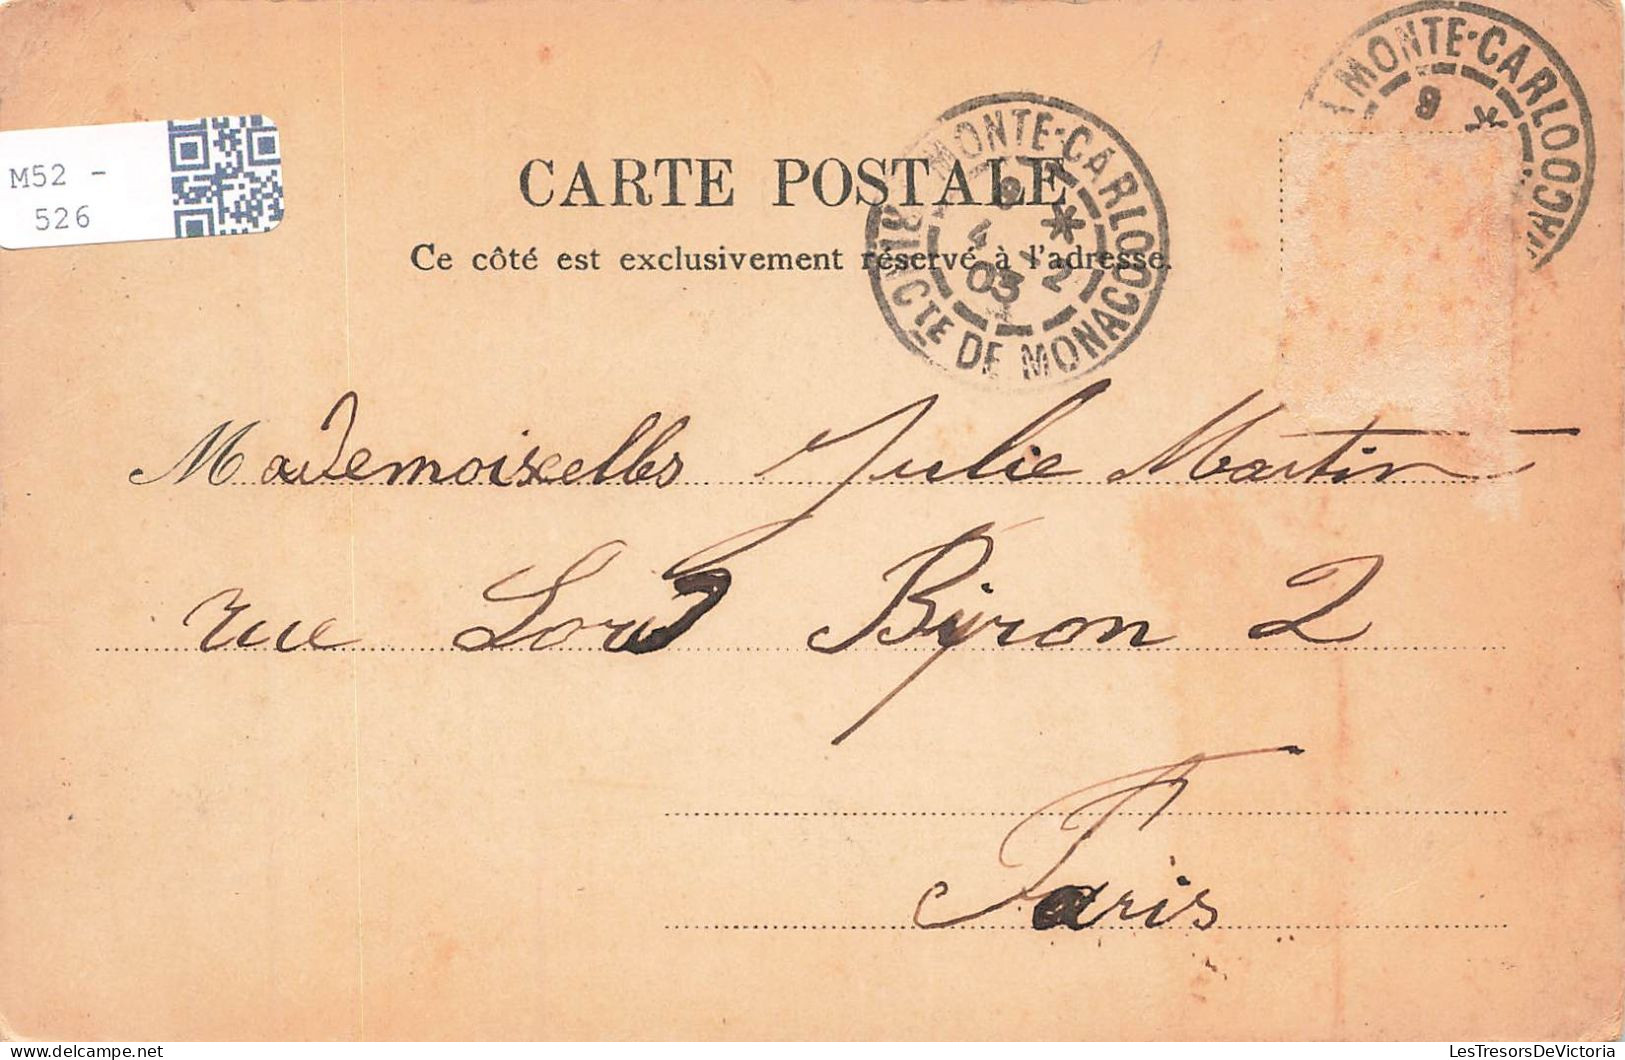 MONTE-CARLO
9 *
MONACO
M52 -
526
CARTE POSTALE
MONTE-CARLO
PRINCTE DE MONACO
4 2
03
Ce côté est exclusivement réservé à l'adresse.
Mademoixelles Julie Martin
rue Lord Byron 2
Paris
LesTresorsDeVictoria